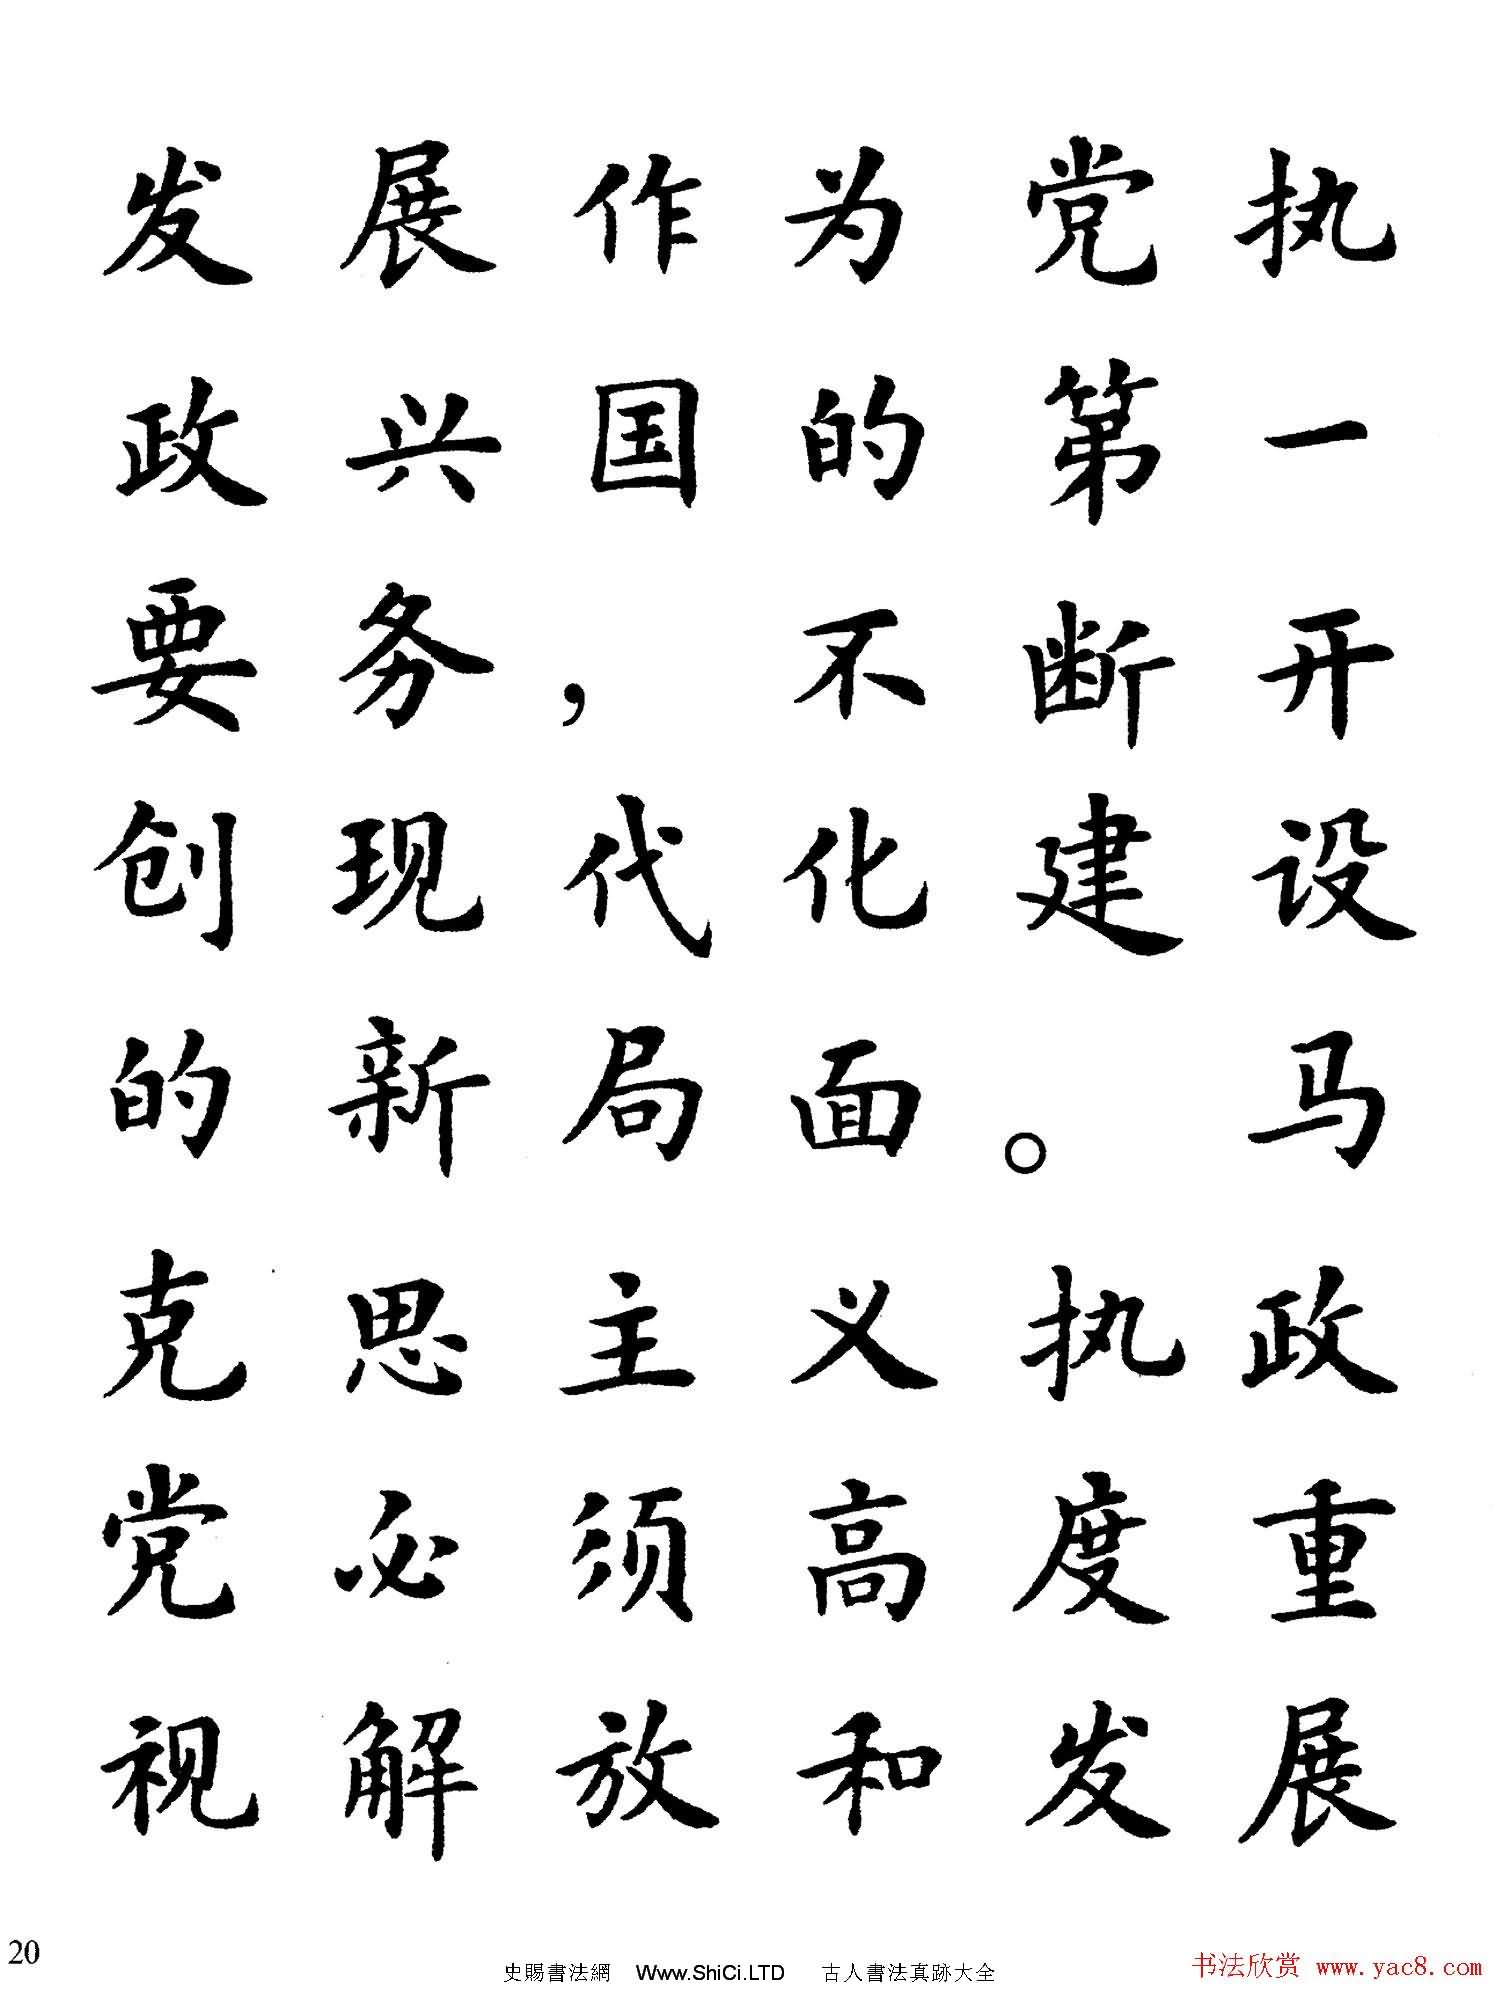 发展作为党执
政兴国的第一
要务，不断开
创现代化建设
的新局面。马
克思主义执政
党必须高度重
视解放和发展
20
史賜書法網 Www.ShiCi.LTD 古人書法真跡大全
书法欣赏 www.yac8.com